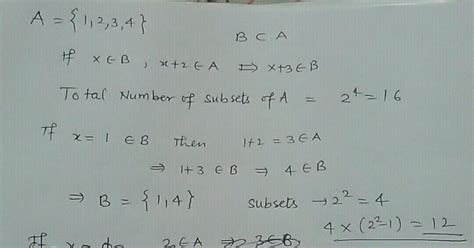 A = {1,2,3,4}
B ⊂ A
If x ∈ B, x+2 ∈ A ⇒ x+3 ∈ B
Total Number of subsets of A = 2⁴ = 16
If x = 1 ∈ B Then 1+2 = 3 ∈ A
⇒ 1+3 ∈ B ⇒ 4 ∈ B
⇒ B = {1,4} subsets → 2² = 4
4 × (2²-1) = 12
If